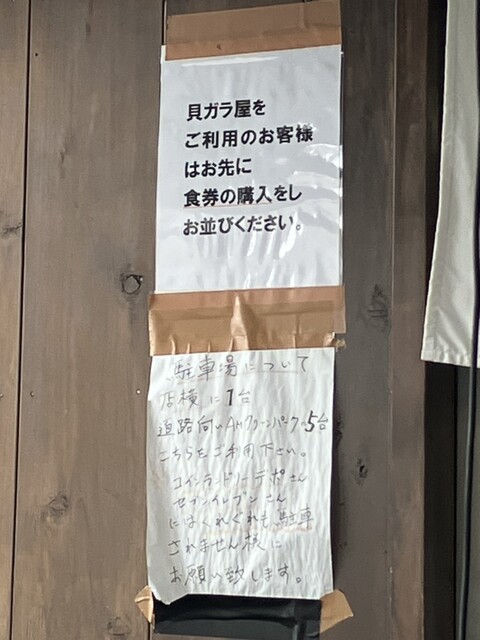 貝ガラ屋を
ご利用のお客様
はお先に
食券の購入をし
お並びください。
駐車場について
店横に1台
道路向いAKグリーンパークの5台
こちらをご利用下さい。
コインランドリーデポさん
セブンイレブンさん
にはくれぐれも駐車
されません様に
お願い致します。